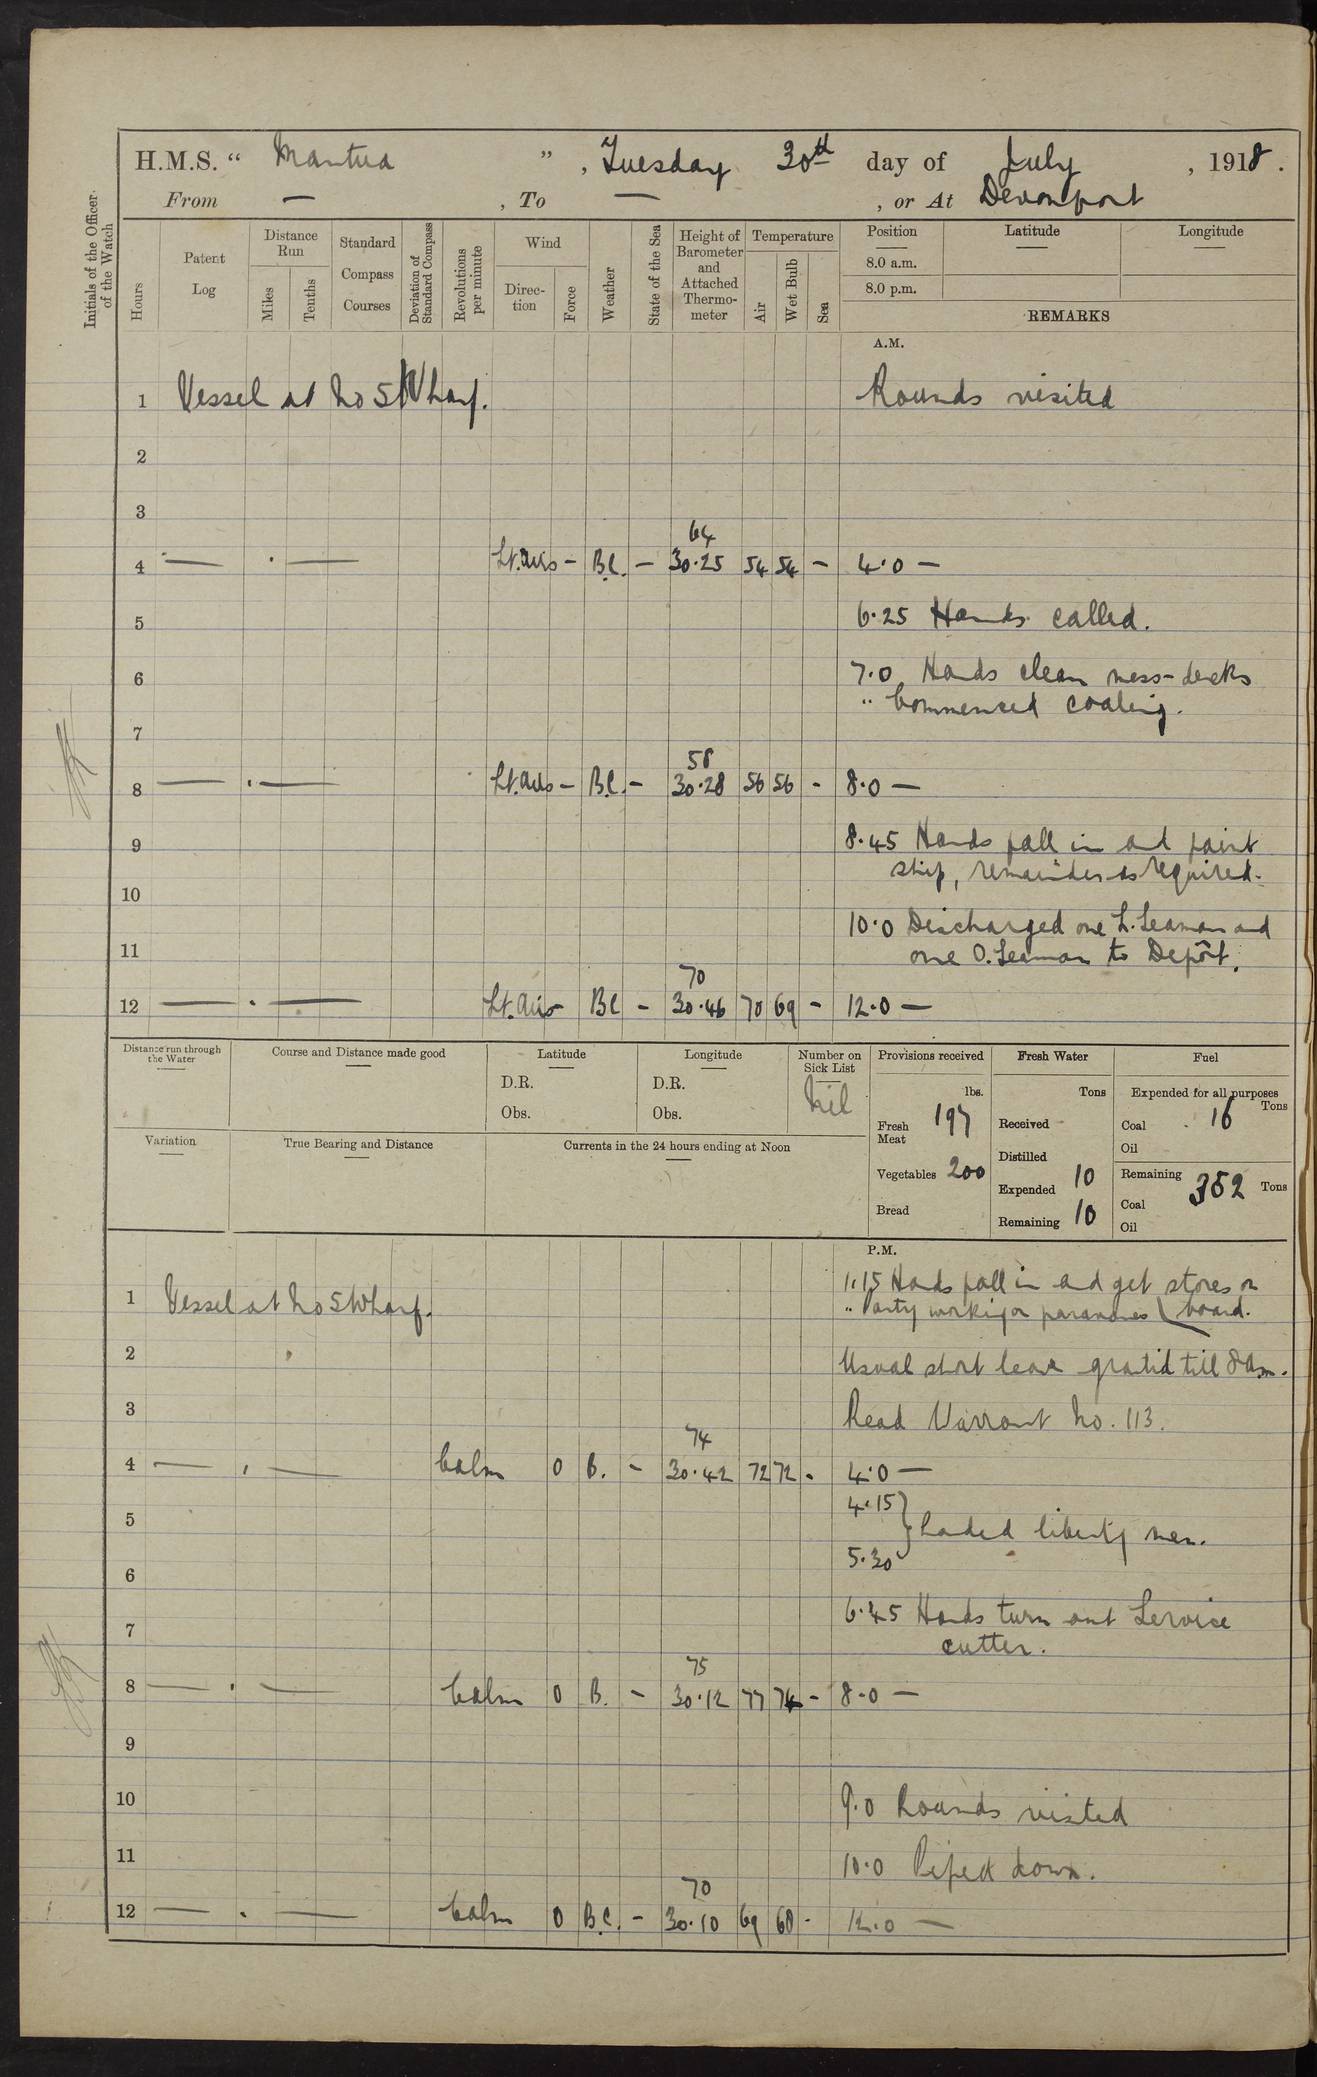 H.M.S. “ Mantua ” , Tuesday 30th day of July , 1918 .
From — , To — , or At Devonport
Initials of the Officer of the Watch
Hours
Patent Log
Distance Run
Miles
Tenths
Standard Compass Courses
Deviation of Standard Compass
Revolutions per minute
Wind
Direc-tion
Force
Weather
State of the Sea
Height of Barometer and Attached Thermo-meter
Temperature
Air
Wet Bulb
Sea
Position
8.0 a.m.
8.0 p.m.
Latitude
Longitude
REMARKS
A.M.
1 Vessel at No 5 Wharf. Rounds visited
2
3
64
4 — . — Lt. airs – B.C. – 30.25 54 54 – 4.0 —
5 6.25 Hands called.
6 7.0 Hands clean mess-decks
" Commenced coaling.
7
58
8 — . — Lt. airs – B.C. – 30.28 56 56 - 8.0 —
9 8.45 Hands fall in and paint
ship, remainder as required.
10
10.0 Discharged one L. Seaman and
11 one O. Seaman to Depôt.
70
12 — . — Lt. airs – BC – 30.46 70 69 – 12.0 —
Distance run through the Water
Course and Distance made good
Latitude
D.R.
Obs.
Longitude
D.R.
Obs.
Number on Sick List
Nil
Variation
True Bearing and Distance
Currents in the 24 hours ending at Noon
Provisions received
lbs.
Fresh Meat 197
Vegetables 200
Bread
Fresh Water
Tons
Received
Distilled
Expended 10
Remaining 10
Fuel
Expended for all purposes
Tons
Coal 16
Oil
Remaining 352 Tons
Coal
Oil
P.M.
1.15 Hands fall in and get stores on
1 Vessel at No 5 Wharf. " Party working on paravanes board.
2 Usual short leave granted till 8 am.
3 Read Warrant No. 113.
74
4 — . — Calm 0 B. – 30.42 72 72 - 4.0 —
4.15
5 Landed liberty men.
5.30
6
6.45 Hands turn out Service
7 cutter.
75
8 — . — Calm 0 B. – 30.12 77 74 – 8.0 —
9
10 9.0 Rounds visited
11 10.0 Piped down.
70
12 — . — Calm 0 B.C. – 30.10 69 68 - 12.0 —